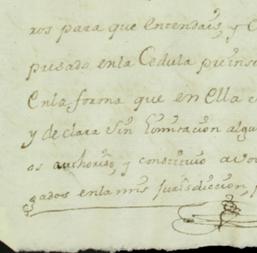 ros para que entendais, y C
presado enla Cedula preinse
Enla forma que en Ella e
y declara sin limitacion algu
os authoriso, y constituio avo
gados enla mis Jurisdiccion,